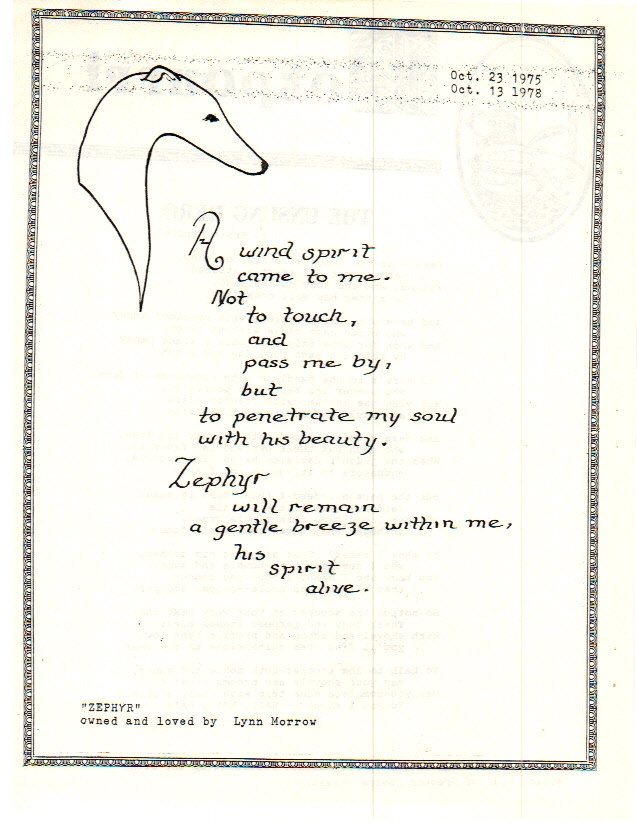 Oct. 23 1975
Oct. 13 1978
A wind spirit
came to me.
Not
to touch,
and
pass me by,
but
to penetrate my soul
with his beauty.
Zephyr
will remain
a gentle breeze within me,
his
spirit
alive.
"ZEPHYR"
owned and loved by Lynn Morrow